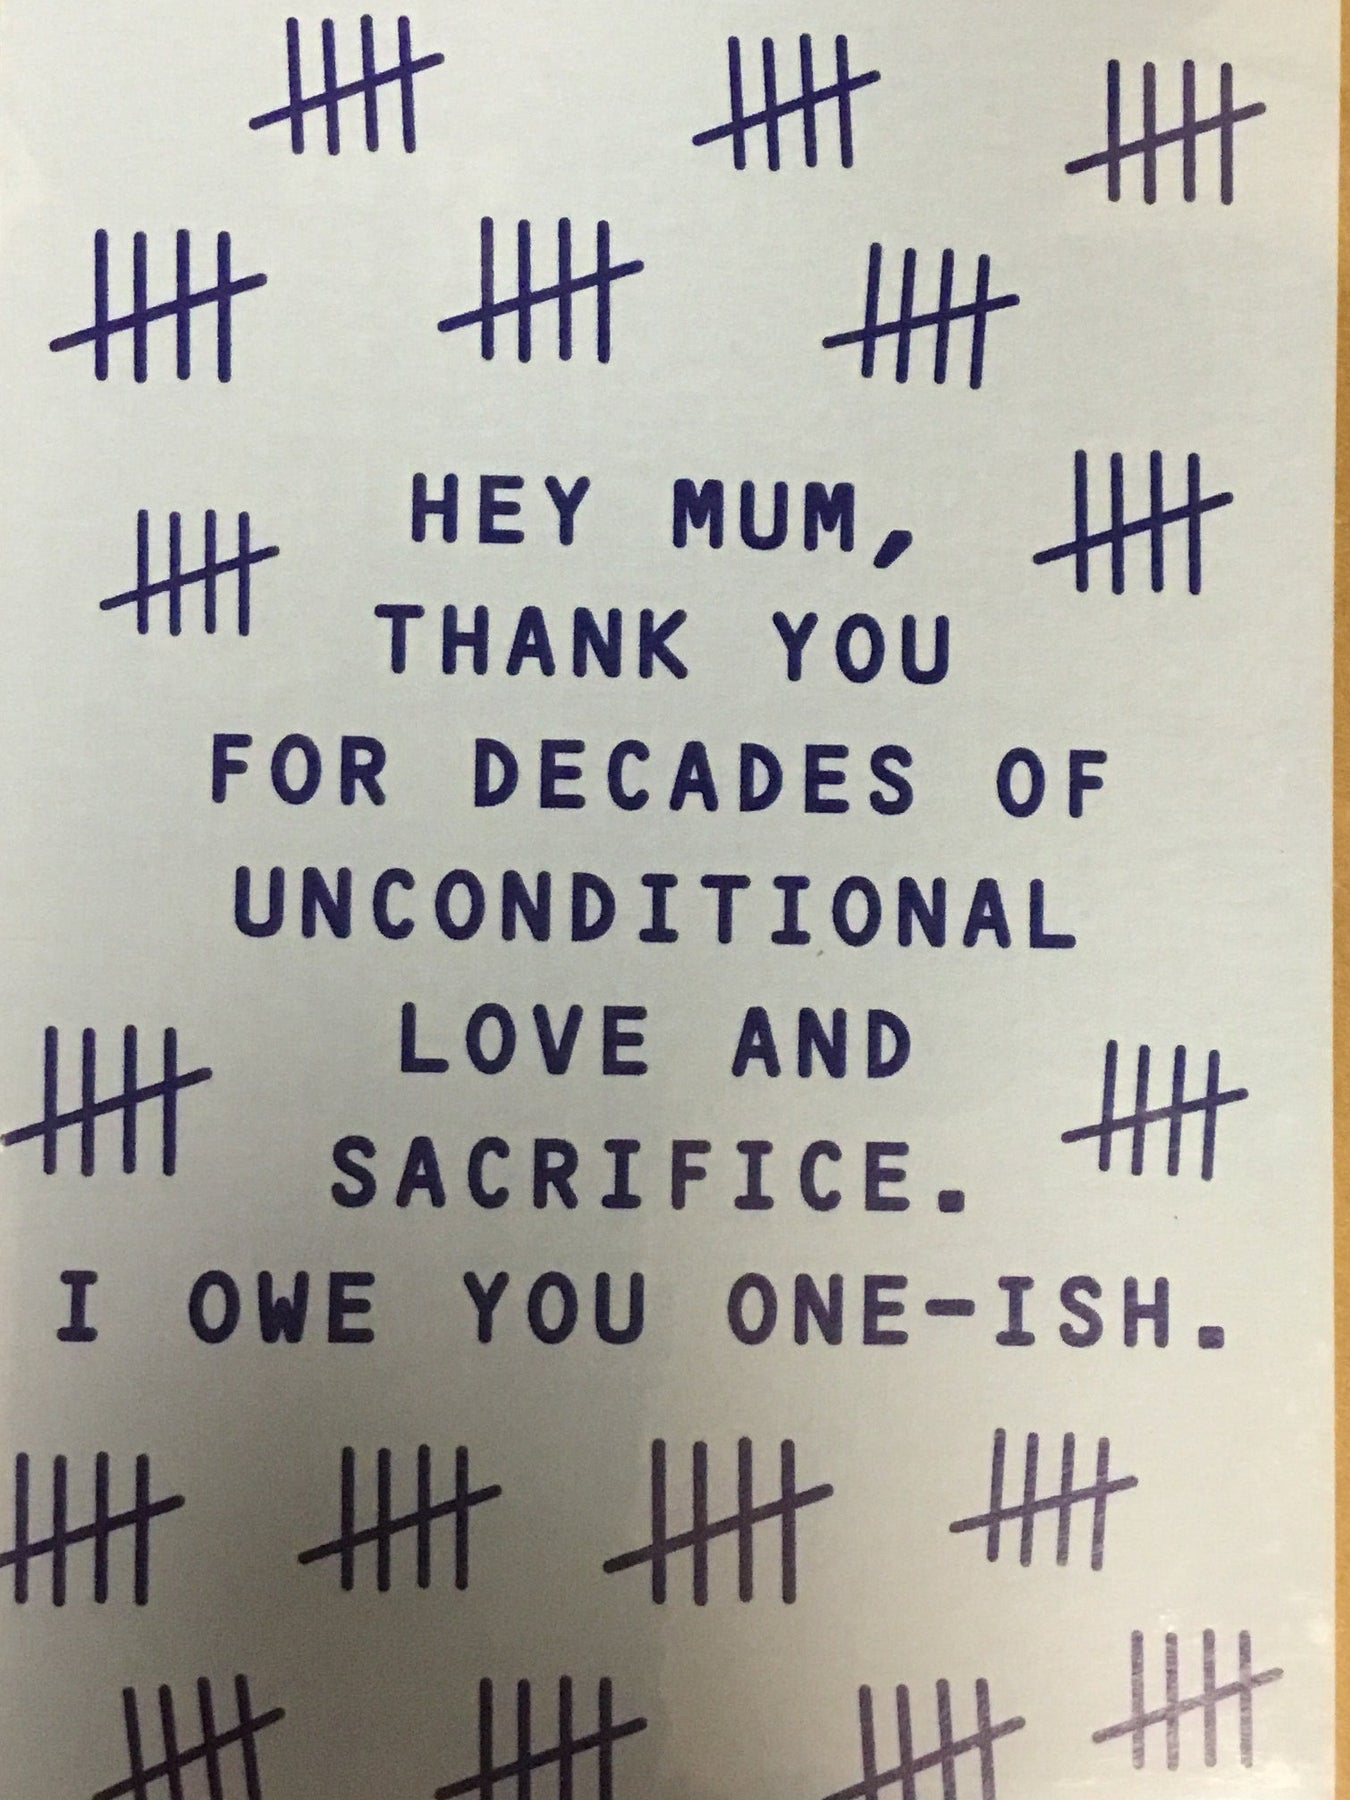 HEY MUM,
THANK YOU
FOR DECADES OF
UNCONDITIONAL
LOVE AND
SACRIFICE.
I OWE YOU ONE-ISH.